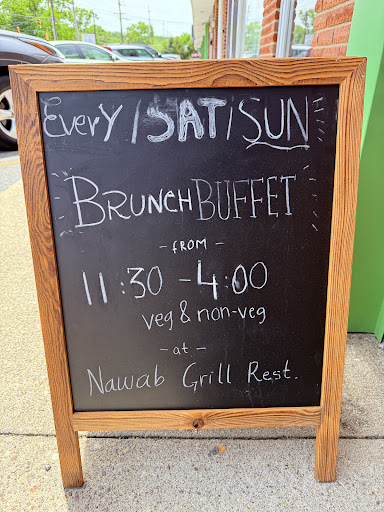 Every / SAT / SUN
BRUNCH BUFFET
- FROM -
11:30 - 4:00
veg & non-veg
- at -
Nawab Grill Rest.